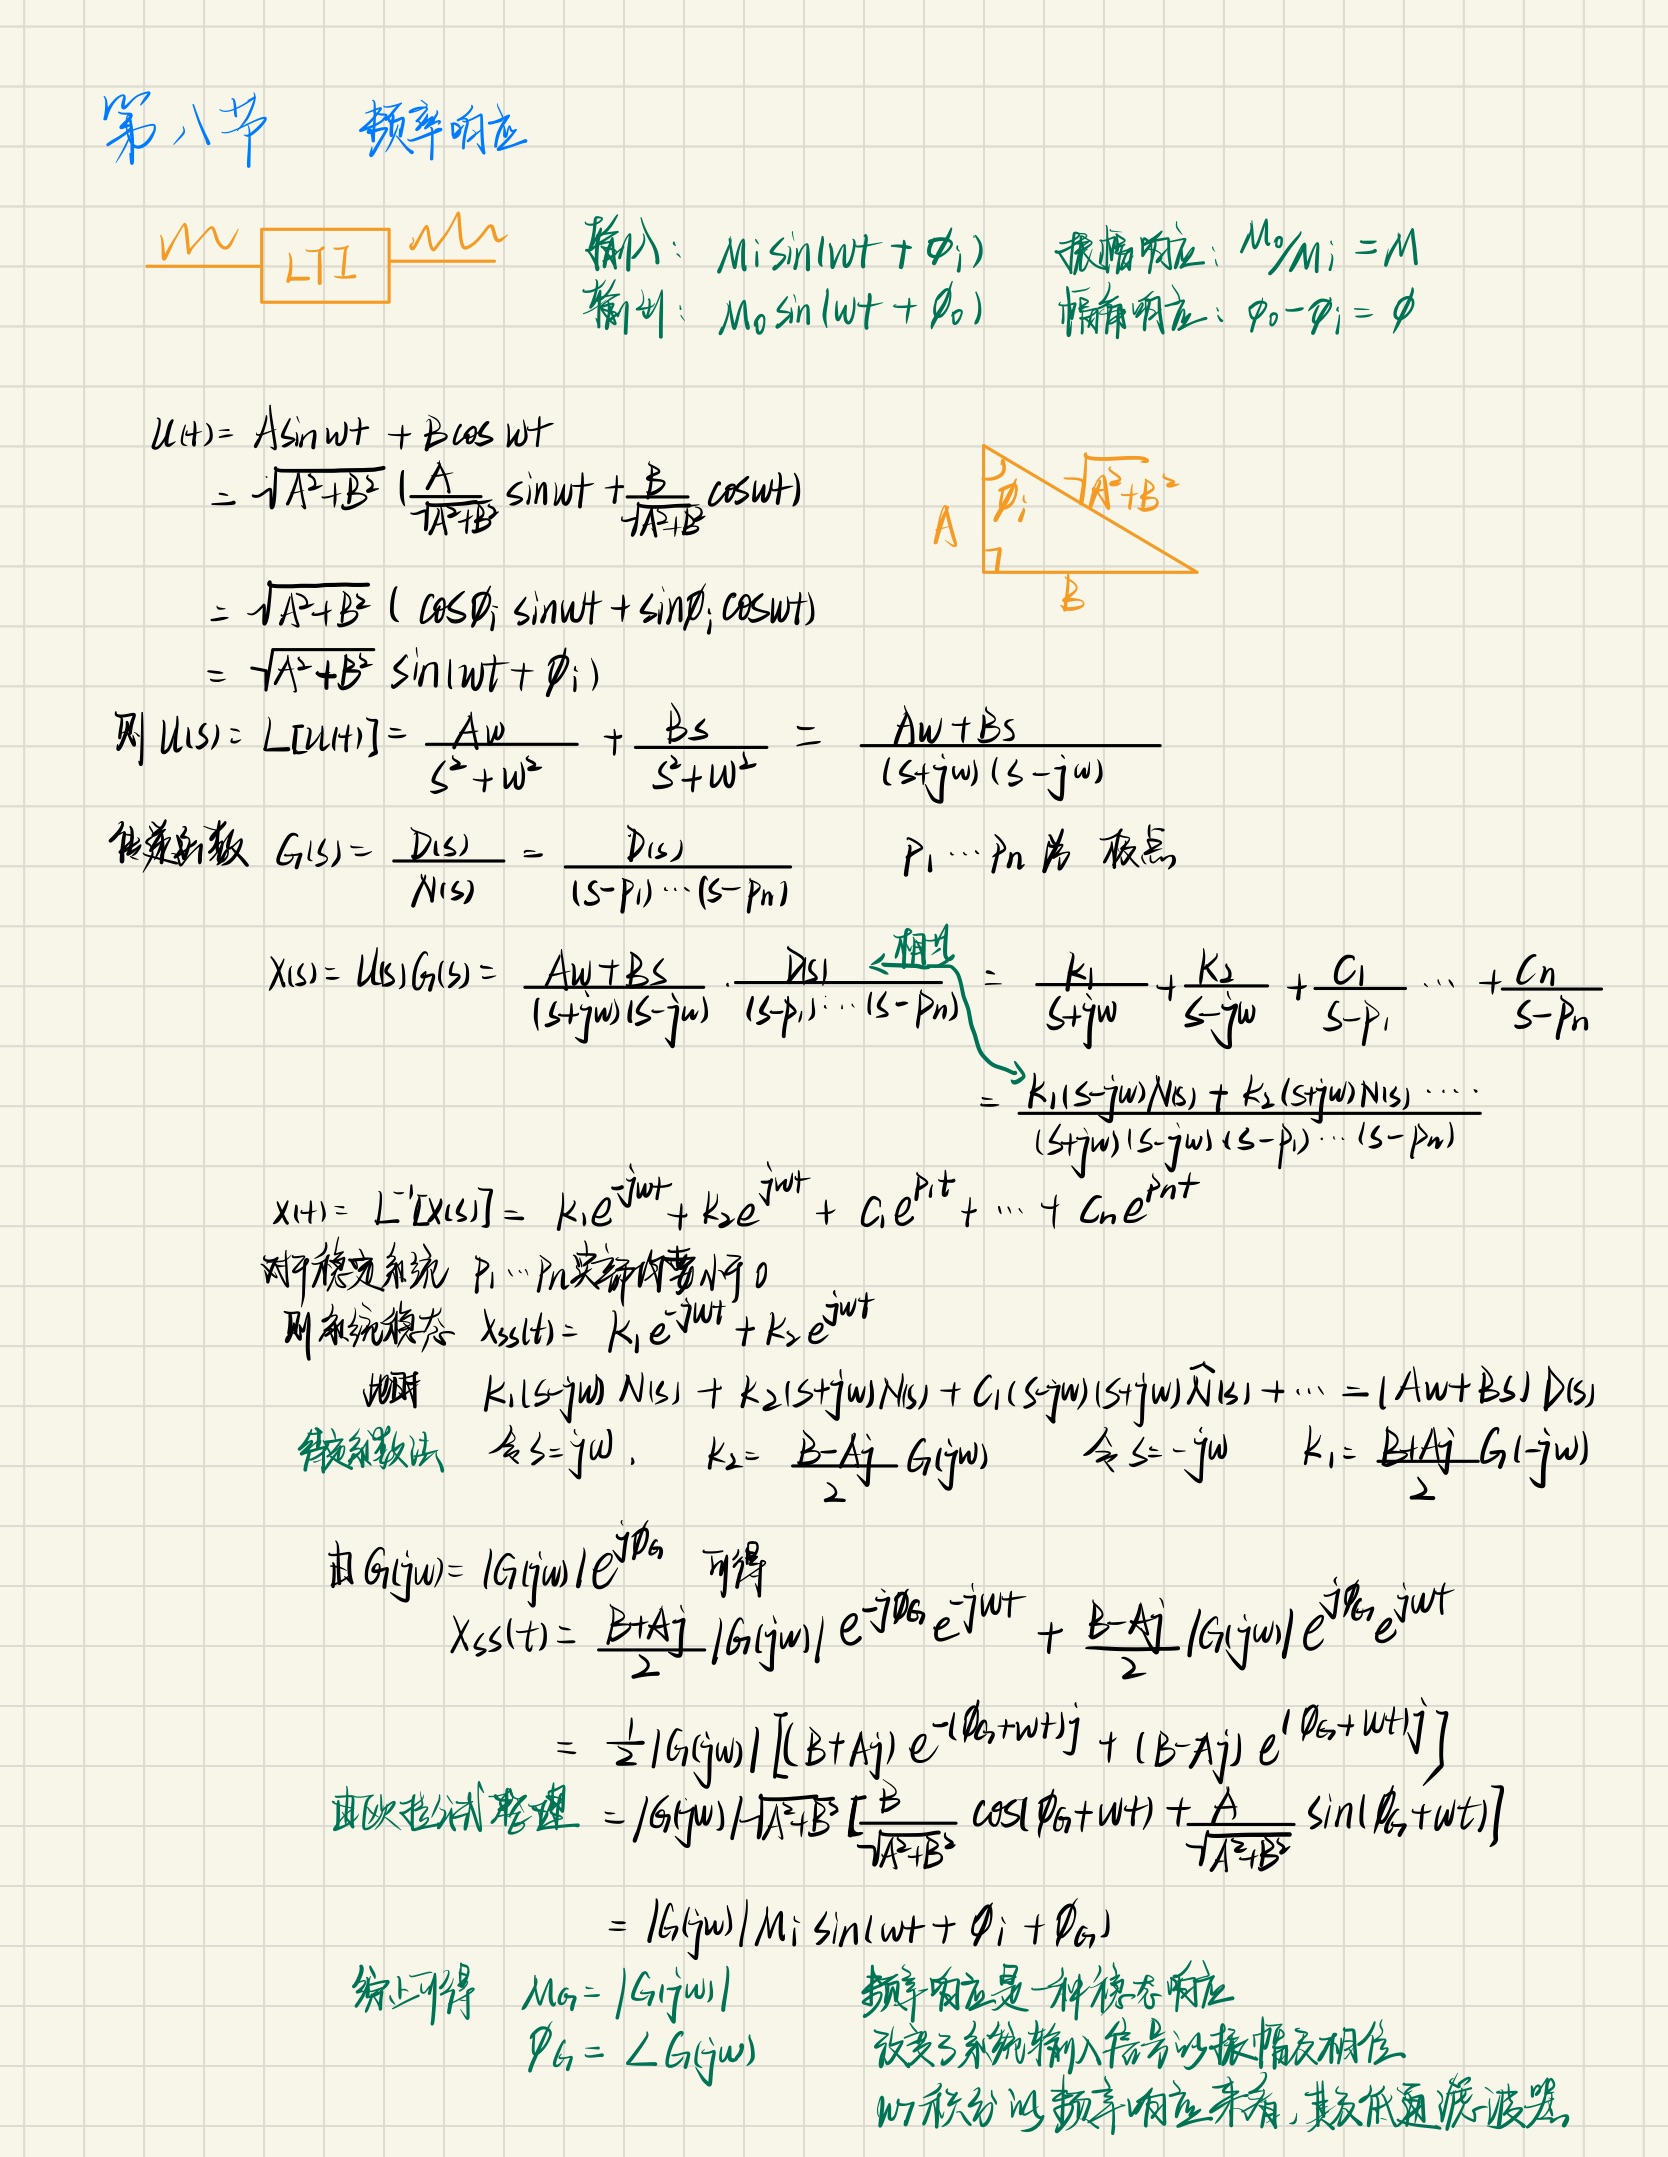 第八节 频率响应
LTI
输入: Mi sin(wt + φi) 振幅响应: Mo/Mi = M
输出: Mo sin(wt + φo) 幅角响应: φo-φi = φ
u(t) = Asinwt + Bcoswt
= √(A²+B²) (A/√(A²+B²) sinwt + B/√(A²+B²) coswt)
A φi √(A²+B²) B
= √(A²+B²) ( cosφi sinwt + sinφi coswt)
= √(A²+B²) sin(wt + φi)
则 U(s) = L[u(t)] = Aw/(s²+w²) + Bs/(s²+w²) = (Aw+Bs)/((s+jw)(s-jw))
传递函数 G(s) = D(s)/N(s) = D(s)/((s-p₁)…(s-pn)) P₁…Pn 为 极点
X(s) = U(s)G(s) = (Aw+Bs)/((s+jw)(s-jw)) · D(s)/((s-p₁)…(s-pn)) = k₁/(s+jw) + k₂/(s-jw) + C₁/(s-p₁) … + Cn/(s-pn)
相比
= (k₁(s-jw)N(s) + k₂(s+jw)N(s) ……)/((s+jw)(s-jw)(s-p₁)…(s-pn))
x(t) = L⁻¹[X(s)] = k₁e^(-jwt) + k₂e^(jwt) + C₁e^(p₁t) + … + Cne^(pnt)
对于稳定系统 P₁…Pn实部均要小于0
则系统稳态 Xss(t) = k₁e^(-jwt) + k₂e^(jwt)
此时 k₁(s-jw)N(s) + k₂(s+jw)N(s) + C₁(s-jw)(s+jw)N̂(s) + … = (Aw+Bs)D(s)
待定系数法 令s=jw, k₂ = (B-Aj)/2 G(jw) 令s=-jw k₁ = (B+Aj)/2 G(-jw)
由G(jw) = |G(jw)|e^(jφG) 可得
Xss(t) = (B+Aj)/2 |G(jw)| e^(-jφG) e^(-jwt) + (B-Aj)/2 |G(jw)| e^(jφG) e^(jwt)
= 1/2 |G(jw)| [(B+Aj) e^(-(φG+wt)j) + (B-Aj) e^((φG+wt)j)]
由欧拉公式整理 = |G(jw)|√(A²+B²) [B/√(A²+B²) cos(φG+wt) + A/√(A²+B²) sin(φG+wt)]
= |G(jw)| Mi sin(wt + φi + φG)
综上可得 MG = |G(jw)| 频率响应是一种稳态响应
φG = ∠G(jw) 改变了系统输入信号的振幅及相位
以积分的频率响应来看,其及低通滤波器